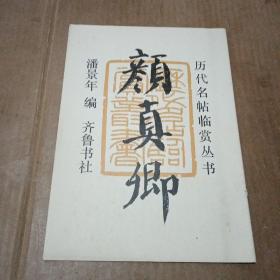 历代名帖临赏丛书
颜真卿
潘景年 编 齐鲁书社